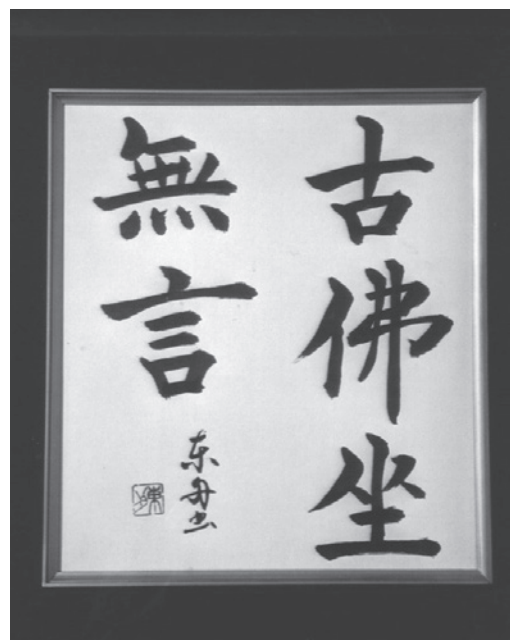 古佛坐
無言
东舟书